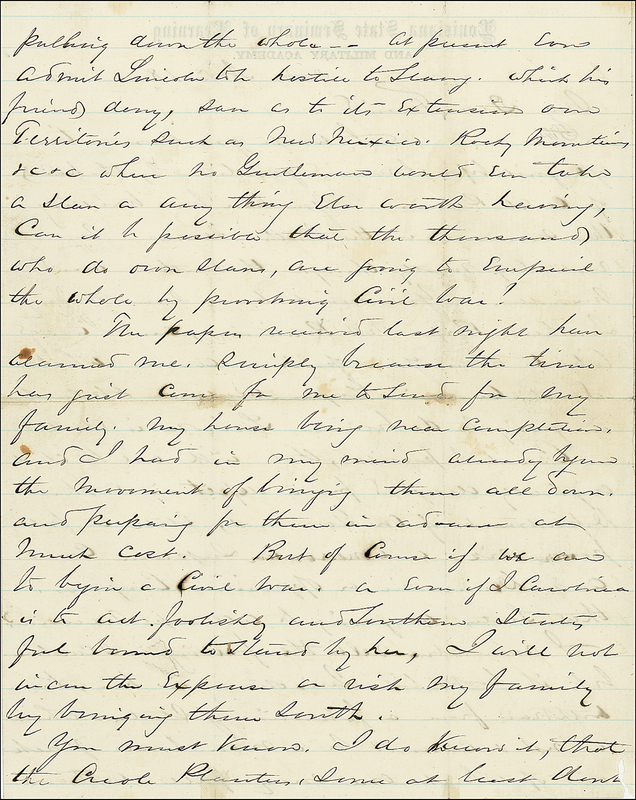 Louisiana State Seminary of Learning
AND MILITARY ACADEMY.
pulling down the whole -- at present Even
Admit Lincoln to be hostile to Slavery. which his
friends deny, save as to its Extension over
Territories such as New Mexico. Rocky Mountains
&c &c where no Gentleman would Ever take
a slave or any thing Else worth having,
Can it be possible that the thousands
who do own slaves, are going to Emperil
the whole by provoking Civil War!
The papers received last night have
alarmed me. Simply because the time
has just come for me to send for my
family. My house being near completion.
and I had in my mind already begun
the movement of bringing them all down.
and preparing for them in advance at
much cost. But of Course if we are
to begin a Civil War. or Even if S Carolina
is to act foolishly and Southern States
feel bound to stand by her, I will not
incur the Expense or risk my family
by bringing them South.
You must Know. I do Know it, that
the Creole Planters, some at least dont